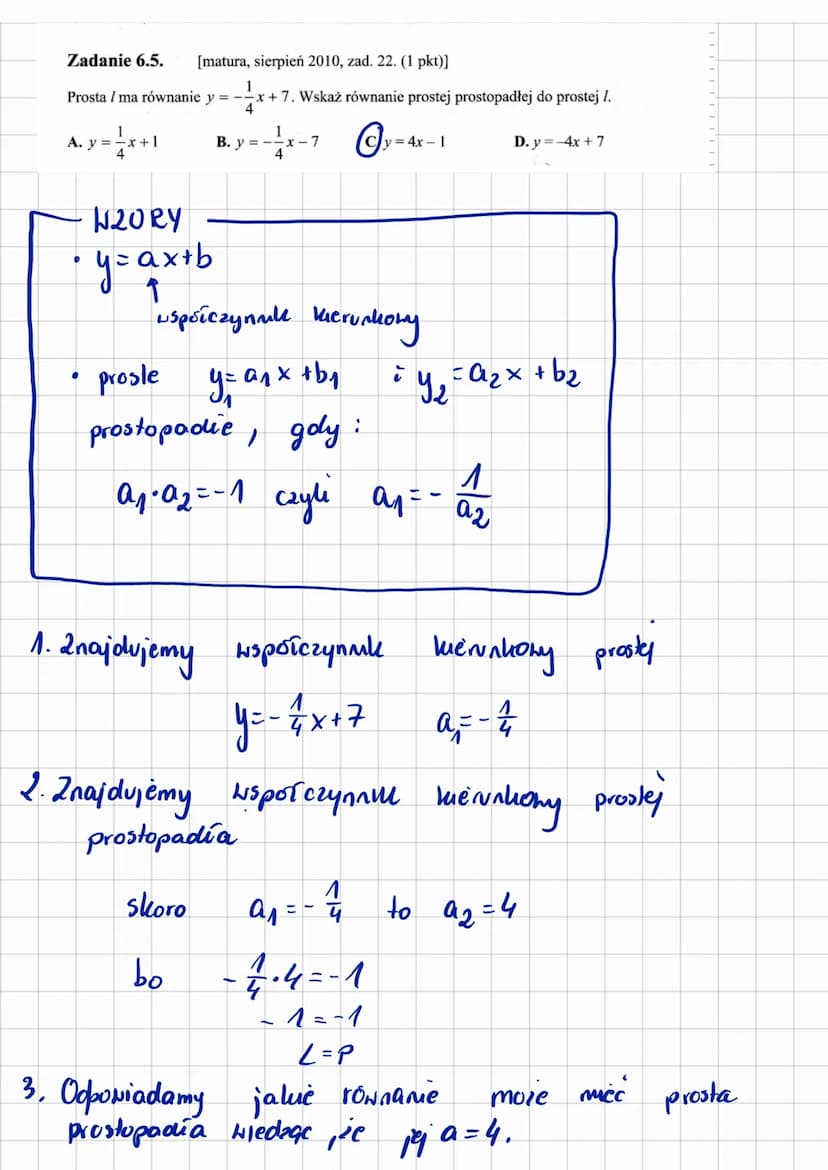 Zadanie 6.5. [matura, sierpień 2010, zad. 22. (1 pkt)]
Prosta l ma równanie y = -1/4 x + 7. Wskaż równanie prostej prostopadłej do prostej l.
A. y = 1/4 x + 1 B. y = -1/4 x - 7 C. y = 4x - 1 D. y = -4x + 7
WZORY
• y = ax + b
↑
współczynnik kierunkowy
• proste y₁ = a₁x + b₁ i y₂ = a₂x + b₂
prostopadłe, gdy:
a₁·a₂ = -1 czyli a₁ = - 1/a₂
1. Znajdujemy współczynnik kierunkowy prostej
y = -1/4 x + 7 a₁ = -1/4
2. Znajdujemy współczynnik kierunkowy prostej
prostopadła
skoro a₁ = -1/4 to a₂ = 4
bo -1/4 · 4 = -1
-1 = -1
L = P
3. Odpowiadamy jakie równanie może mieć prosta
prostopadła wiedząc, że jej a = 4.